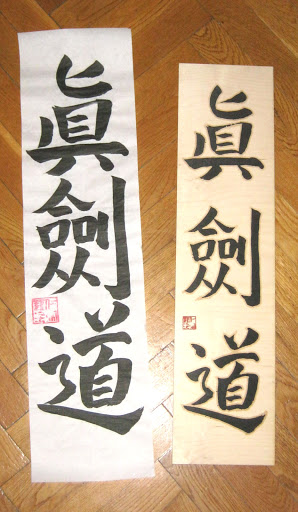 眞劍道
眞劍道